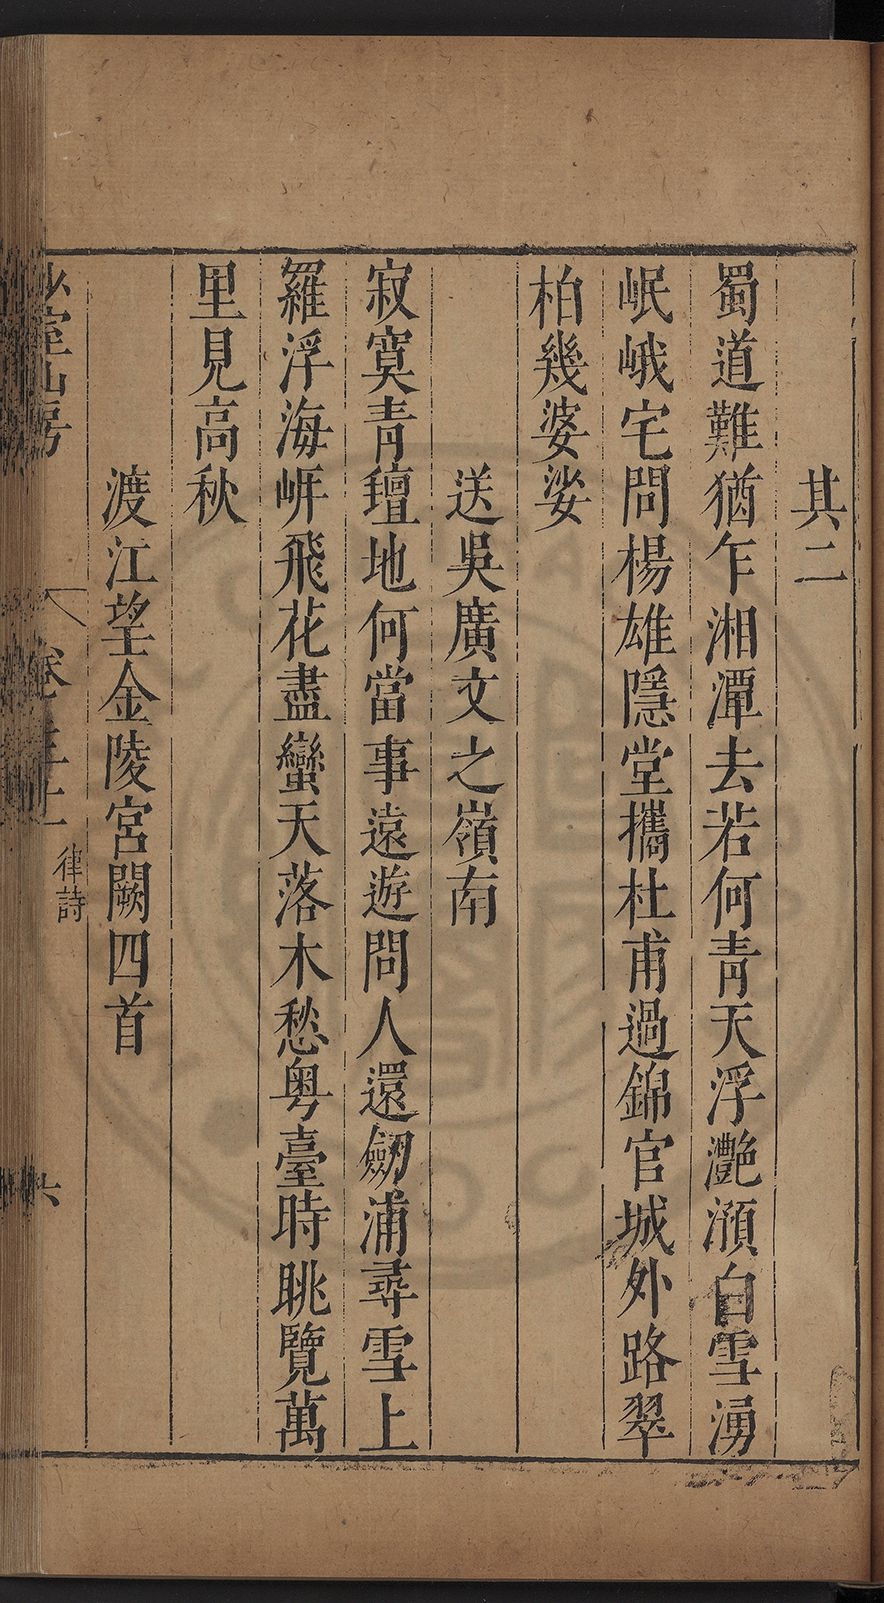 其二
蜀道難猶乍湘潭去若何青天浮灩澦白雪湧
岷峨宅問楊雄隱堂攜杜甫過錦官城外路翠
柏幾婆娑
送吳廣文之嶺南
寂寞青氊地何當事遠遊問人還劒浦尋雪上
羅浮海㟁飛花盡蠻天落木愁粤臺時眺覽萬
里見高秋
渡江望金陵宮闕四首
少室山房
律詩
六